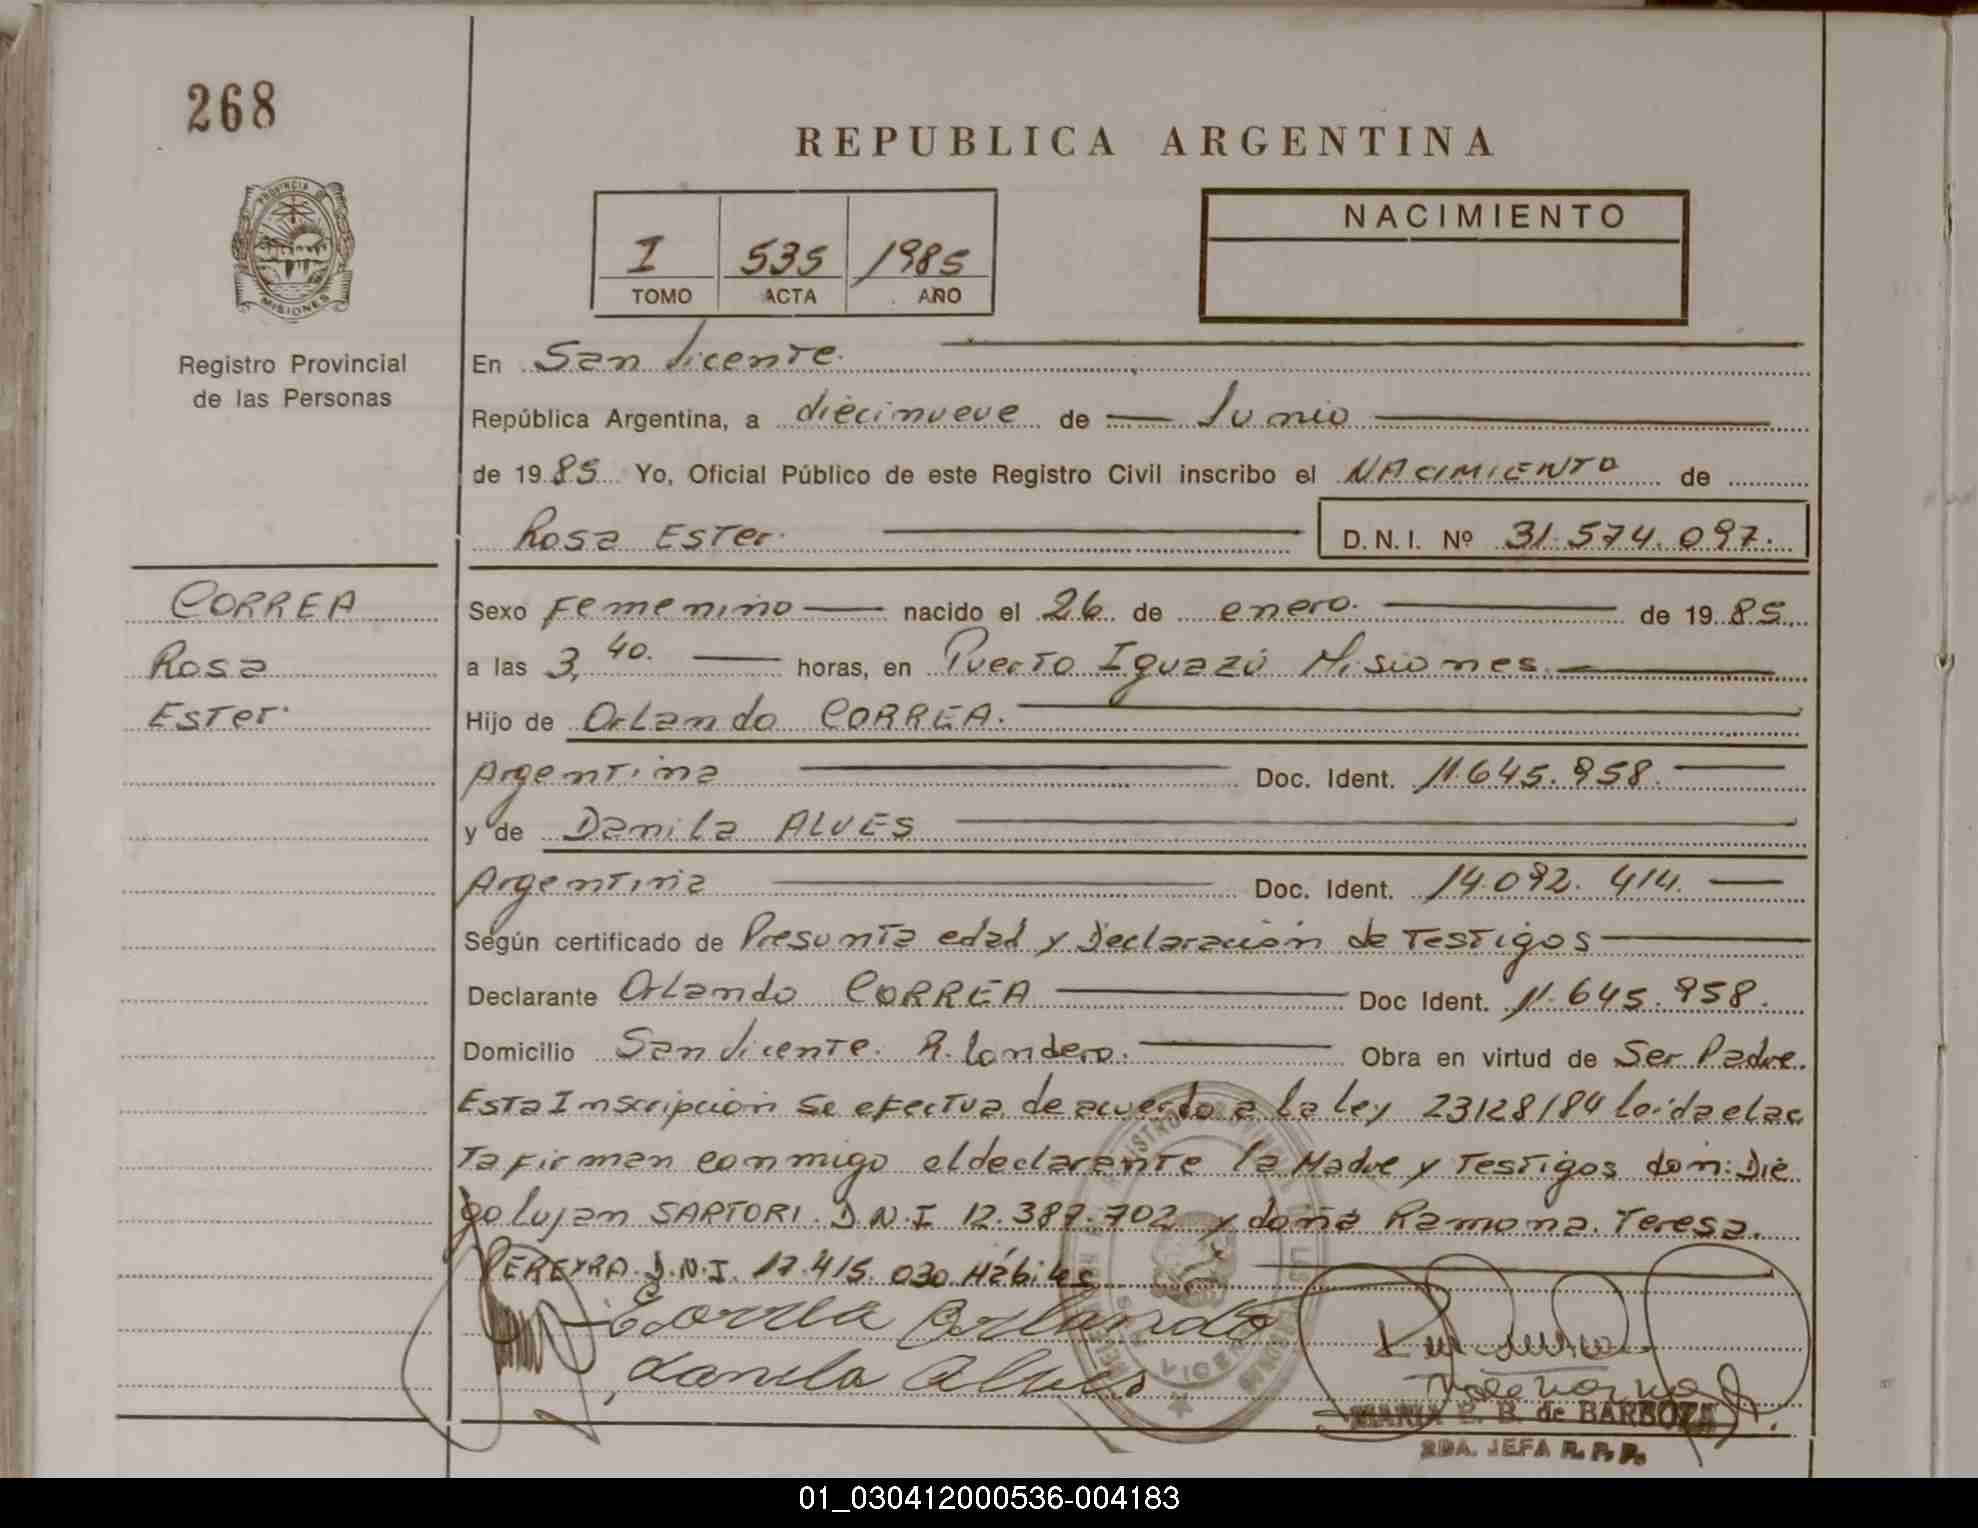 268
REPUBLICA ARGENTINA
PROVINCIA DE
MISIONES
I 535 1985
TOMO ACTA AÑO
NACIMIENTO
Registro Provincial
de las Personas
En San Vicente.
República Argentina, a diecinueve de Junio
de 1985 Yo, Oficial Público de este Registro Civil inscribo el NACIMIENTO de
Rosa Ester. D.N.I. Nº 31.574.097.
CORREA
Rosa
Ester.
Sexo Femenino nacido el 26 de enero. de 1985
a las 3,40. horas, en Puerto Iguazú Misiones.
Hijo de Orlando CORREA.
Argentina Doc. Ident. 11.645.958.
y de Danila ALVES
Argentina Doc. Ident. 14.092.414.
Según certificado de Presunta edad y Declaración de Testigos
Declarante Orlando CORREA Doc Ident. 11.645.958.
Domicilio San Vicente. R. Londero. Obra en virtud de Ser Padre.
Esta Inscripción se efectua de acuerdo a la ley 23128/84 leída el ac
ta firman conmigo el declarante la Madre y Testigos don: Die
go Lujan SARTORI. D.N.I 12.387.702 y doña Ramona. Teresa.
PEREYRA. D.N.I. 17.415.030 Hábiles
Correa Orlando
danila Alves
MARIA E. B. de BARBOZA
2DA. JEFA R. P. P.
01_030412000536-004183